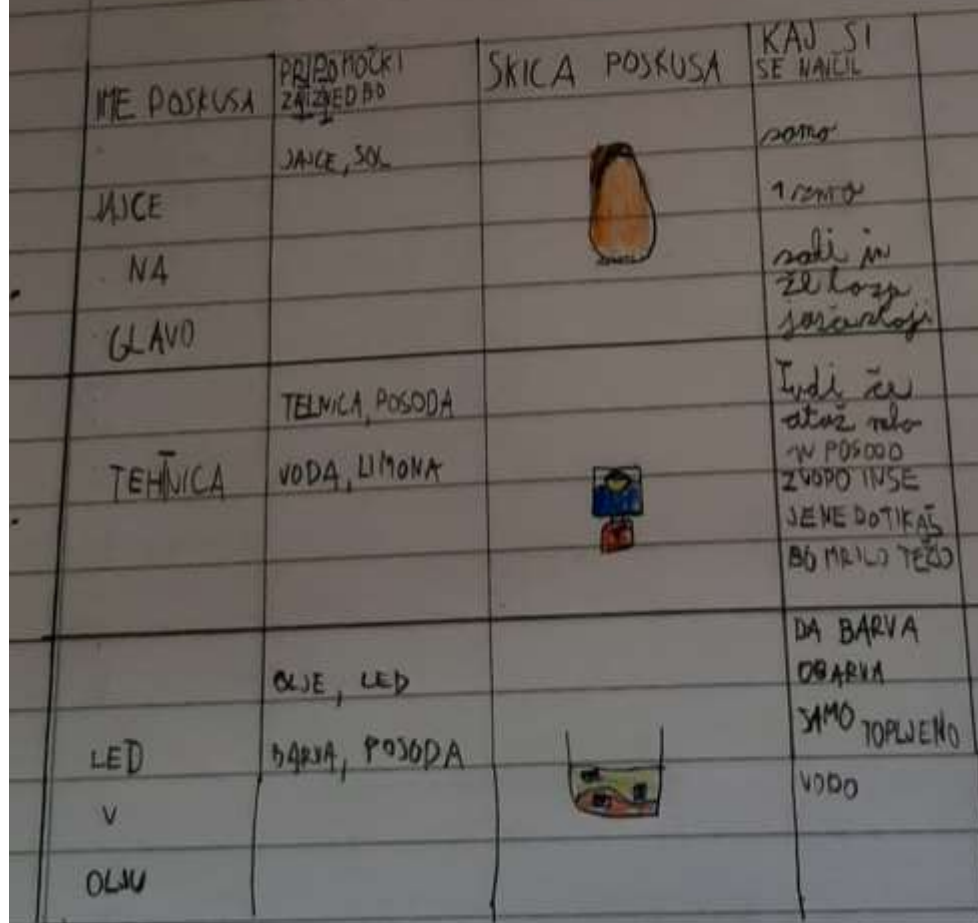 IME POSKUSA
PRIPOMOČKI
ZA IZVEDBO
SKICA POSKUSA
KAJ SI
SE NAUČIL
JAJCE
NA
GLAVO
JAJCE, SOL
samo
1 zrno
soli in
že
TEHNICA
TEHNICA, POSODA
VODA, LIMONA
Tudi če
V POSODO
Z VODO IN SE
JE NE DOTIKAŠ
BO MRILO TEŽO
LED
V
OLJU
OLJE, LED
BARVA, POSODA
DA BARVA
OBARVA
SAMO TOPLJENO
VODO